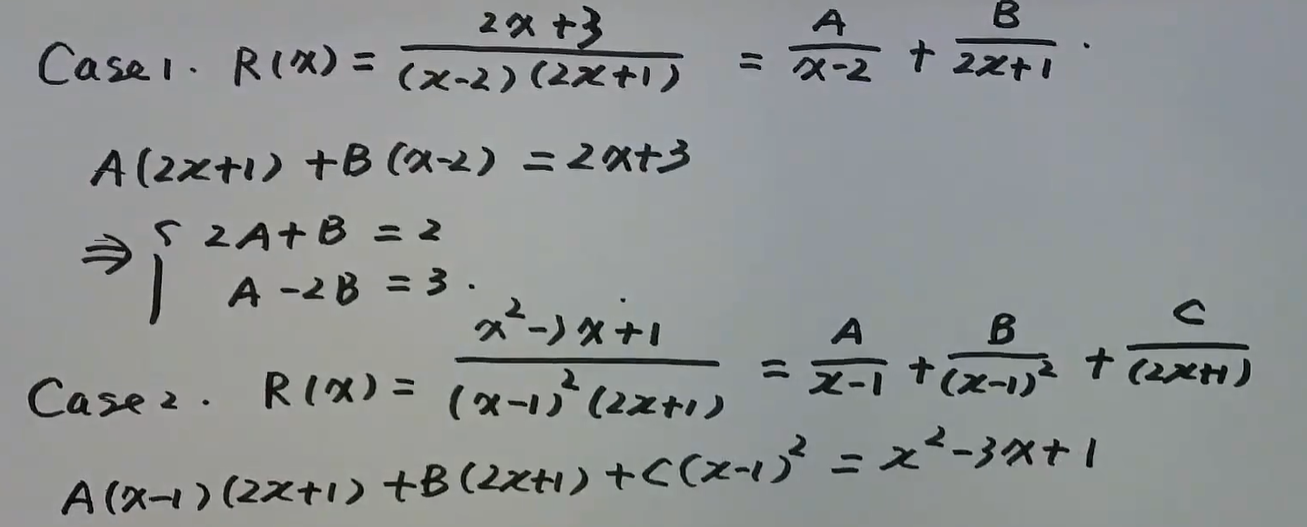 Case 1. R(x) = \frac{2x+3}{(x-2)(2x+1)} = \frac{A}{x-2} + \frac{B}{2x+1}.
A(2x+1) + B(x-2) = 2x+3
⇒ { 2A+B = 2
A-2B = 3.
Case 2. R(x) = \frac{x^2-3x+1}{(x-1)^2(2x+1)} = \frac{A}{x-1} + \frac{B}{(x-1)^2} + \frac{C}{(2x+1)}
A(x-1)(2x+1) + B(2x+1) + C(x-1)^2 = x^2-3x+1